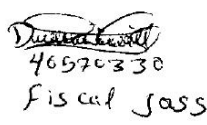 40570330
fiscal sass